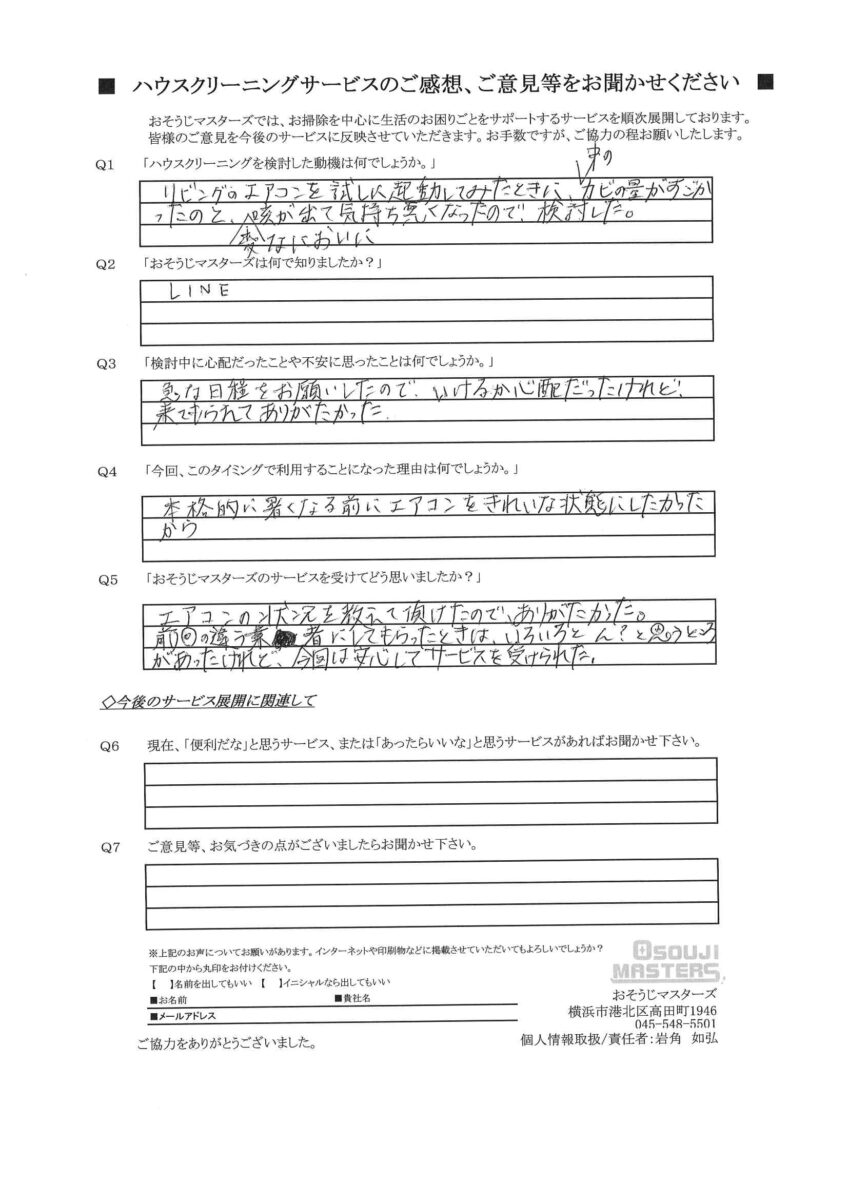 ■ ハウスクリーニングサービスのご感想、ご意見等をお聞かせください ■
おそうじマスターズでは、お掃除を中心に生活のお困りごとをサポートするサービスを順次展開しております。
皆様のご意見を今後のサービスに反映させていただきます。お手数ですが、ご協力の程お願いしたします。
Q1 「ハウスクリーニングを検討した動機は何でしょうか。」
中の
リビングのエアコンを試しに起動してみたときに、カビの量がすごか
ったのと、咳が出て気持ち悪くなったので、検討した。
変なにおいに
Q2 「おそうじマスターズは何で知りましたか？」
LINE
Q3 「検討中に心配だったことや不安に思ったことは何でしょうか。」
急な日程をお願いしたので、いけるか心配だったけれど、
来てもられてありがたかった.
Q4 「今回、このタイミングで利用することになった理由は何でしょうか。」
本格的に暑くなる前にエアコンをきれいな状態にしたかった
から
Q5 「おそうじマスターズのサービスを受けてどう思いましたか？」
エアコンの状況を教えて頂けたので、ありがたかった。
前回の違う業者にしてもらったときは、いろいろと ん？と思うところ
があったけれど、今回は安心してサービスを受けられた。
◇今後のサービス展開に関連して
Q6 現在、「便利だな」と思うサービス、または「あったらいいな」と思うサービスがあればお聞かせ下さい。
Q7 ご意見等、お気づきの点がございましたらお聞かせ下さい。
※上記のお声についてお願いがあります。インターネットや印刷物などに掲載させていただいてもよろしいでしょうか？
下記の中から丸印をお付けください。
【　】名前を出してもいい 【　】イニシャルなら出してもいい
■お名前 ■貴社名
■メールアドレス
ご協力をありがとうございました。
OSOUJI
MASTERS
おそうじマスターズ
横浜市港北区高田町1946
045-548-5501
個人情報取扱/責任者：岩角 如弘